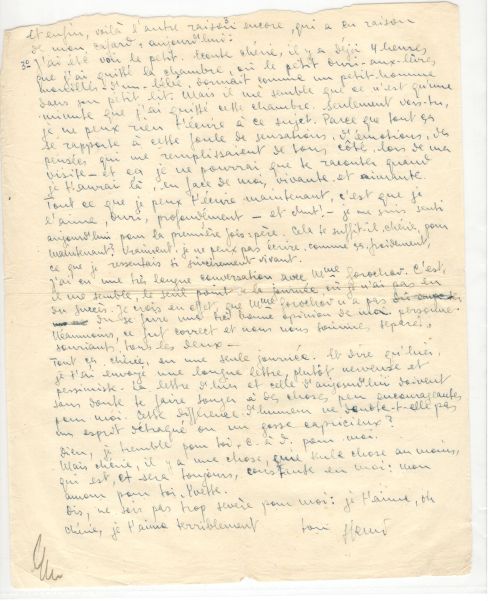 Et enfin, voilà l'autre raison encore, qui a eu raison
de mon cafard, aujourd'hui:
3o J'ai été voir le petit. Ecoute chérie, il y a déjà 4 heures
que j'ai quitté la chambre, où le petit Ouri - aux-lèvres
dormait comme un petit homme
dans son petit lit. Mais il me semble que ce n'est qu'une
minute que j'ai quitté cette chambre. Seulement vois-tu,
je ne peux rien t'écrire à ce sujet. Parce que tout ça
se rapporte à cette foule de sensations, d'émotions, des
pensées qui me remplissaient de tous côté, lors de ma
visite - et ça je ne pourrai que te raconter quand
je t'aurai là, en face de moi, vivante et aimante.
Tout ce que je peux t'écrire maintenant, c'est que je
l'aime, Ouri, profondément - et - je me suis senti
aujourd'hui pour la première fois: père. Cela te suffit-il, chérie, pour
maintenant? Vraiment je ne peux pas écrire, comme ça, froidement,
ce que je ressentais si sincèrement vivant.
J'ai eu une très longue conversation avec Mme Gorochov. C'est,
il me semble, le seul point de la journée où je n'ai pas eu
du succès. Je crois en effet que Mme Gorochov n'a pas
dû se faire une très bonne opinion de ma personne.
Néanmoins, ce fut correct et nous nous sommes séparés,
souriants, tous les deux -
Tout ça, chérie, en une seule journée. Et dire qu'hier,
je t'ai envoyé une longue lettre, plutôt nerveuse et
pessimiste. La lettre d'hier et celle d'aujourd'hui doivent
sans doute te faire songer à des choses peu encourageantes
pour moi. Cette différence d'humeur ne dénote-t-elle pas
un esprit détraqué ou un gosse capricieux?
Bien, je tremble pour toi, c. à d. pour moi.
Mais chérie, il y a une chose, une seule chose au moins,
qui est, et sera toujours, constante en moi: mon
amour pour toi, Yvette.
Dis, ne sois pas trop sévère pour moi: je t'aime, oh
chérie, je t'aime terriblement ton